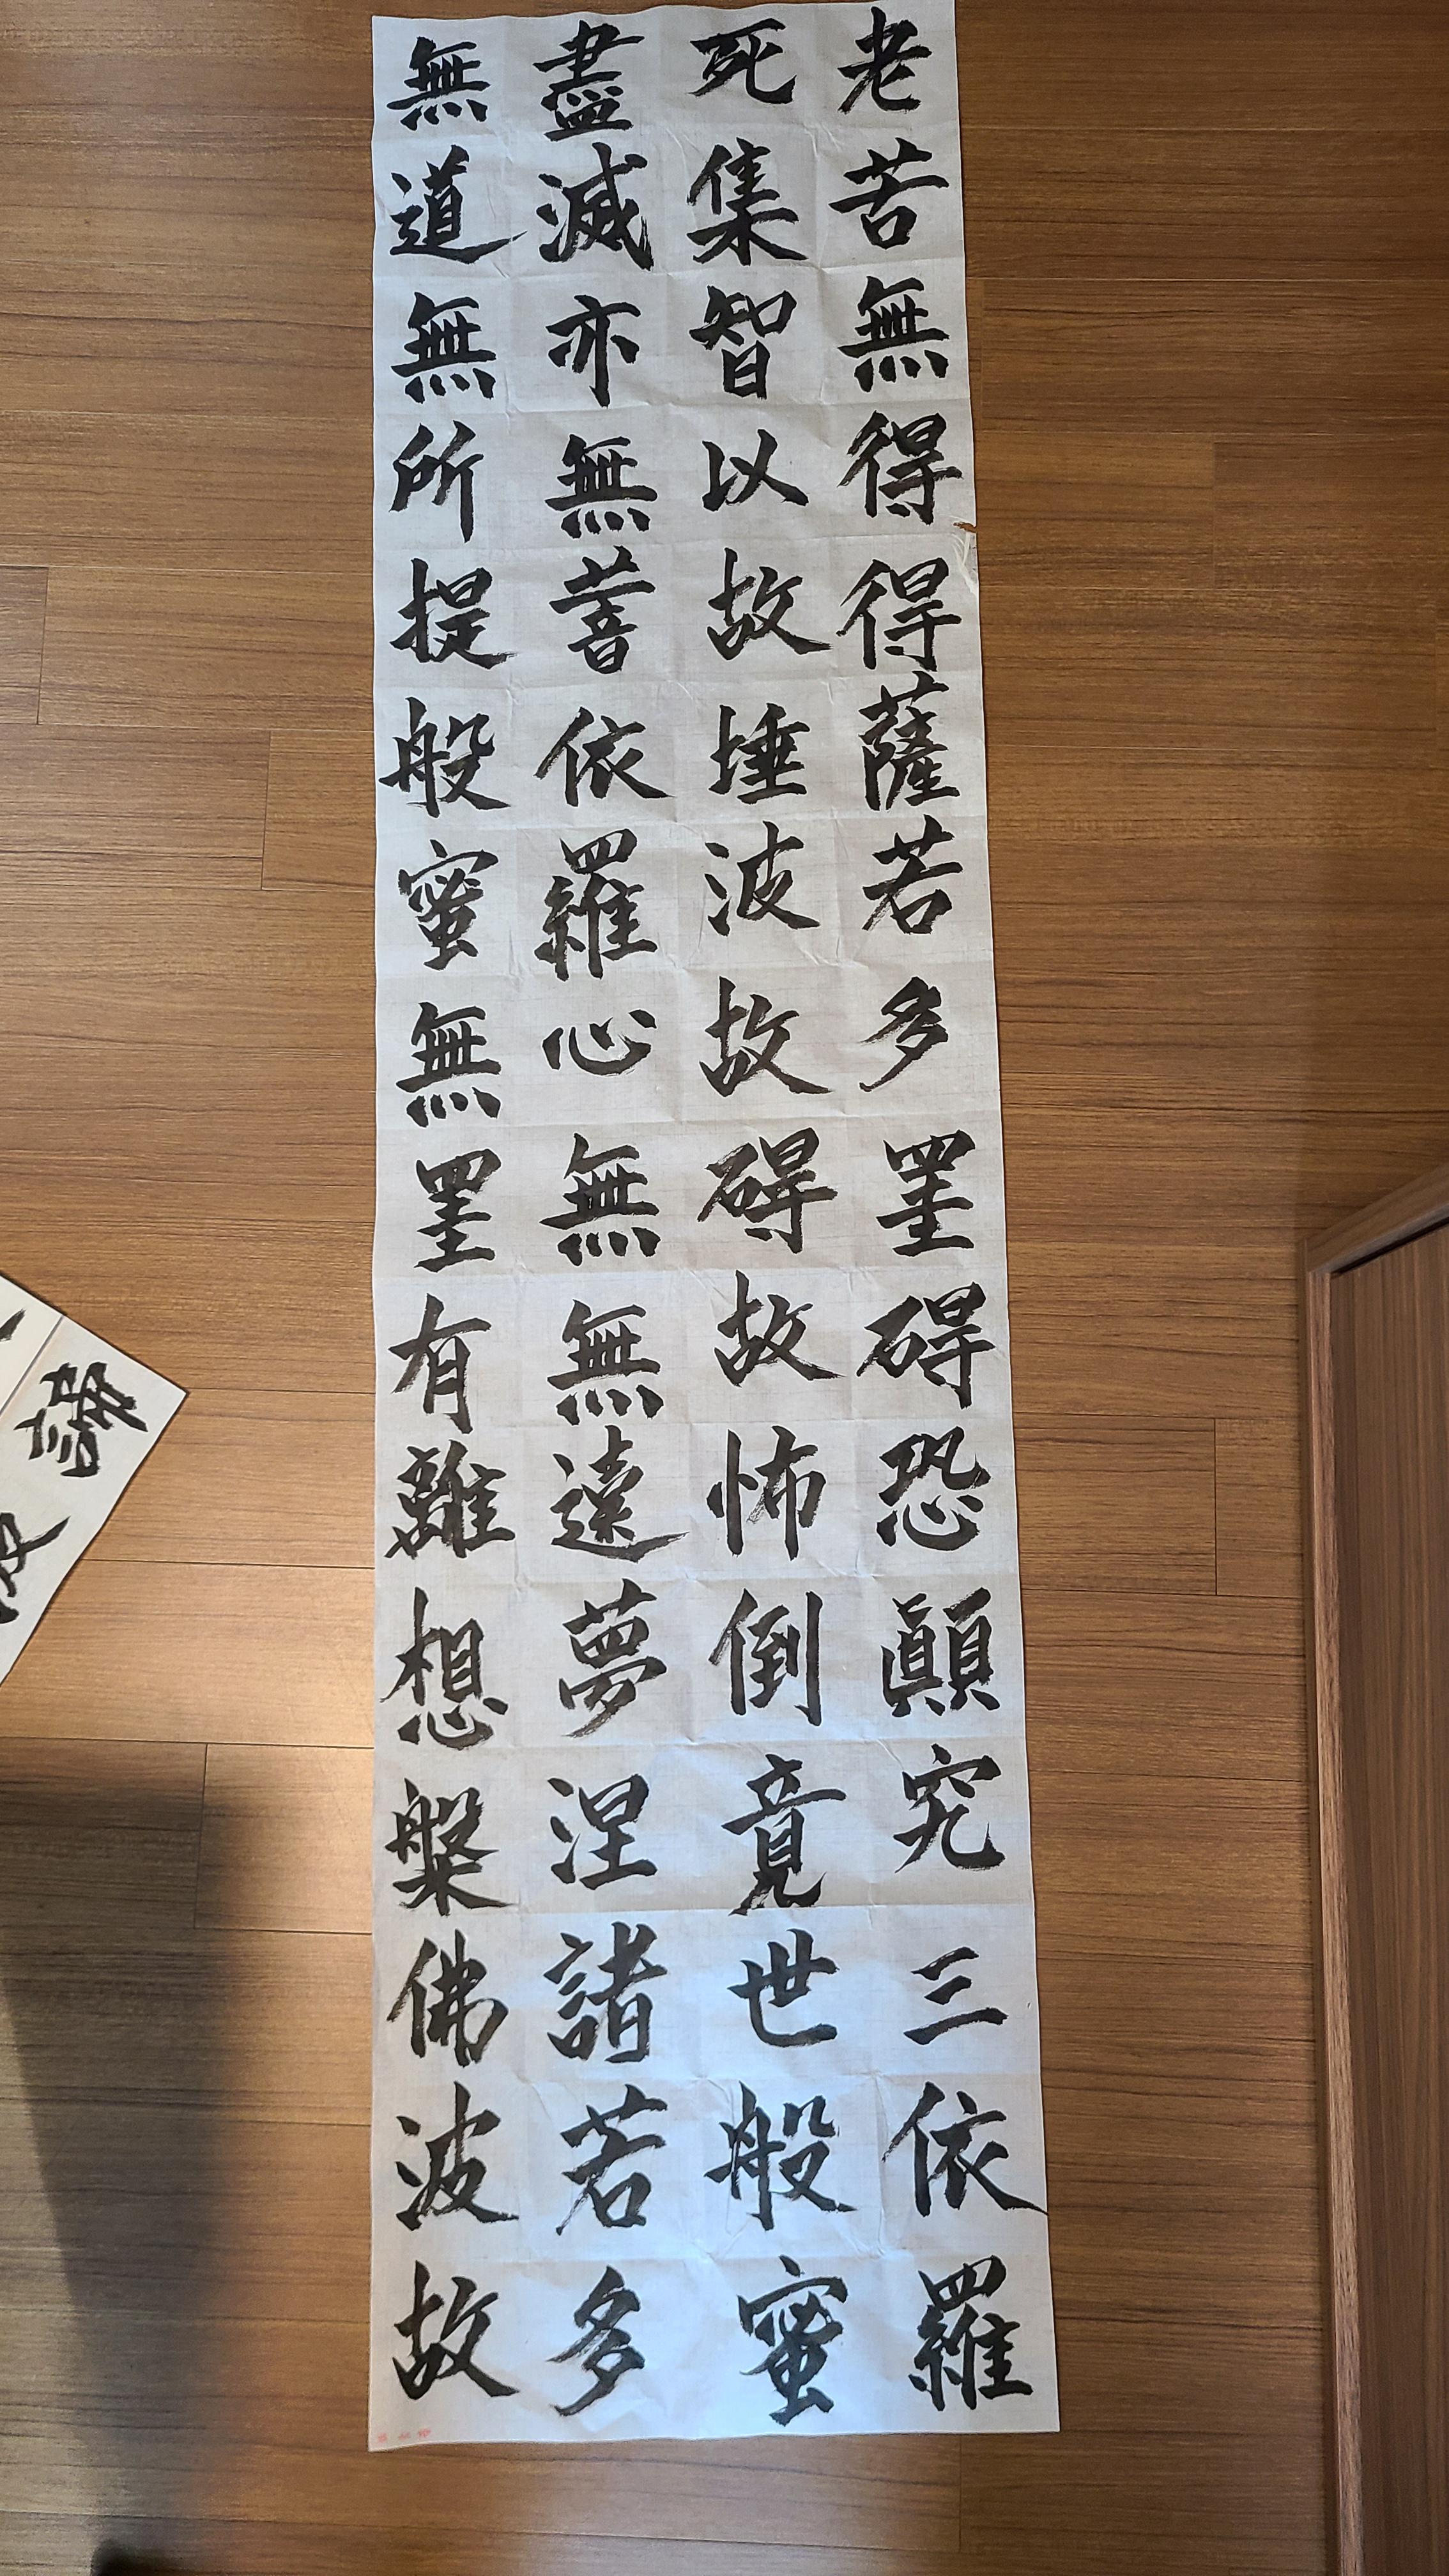 老死盡無
苦集滅道
無智亦無
得以無所
得故菩提
薩埵依般
若波羅蜜
多故心無
罣碍無罣
碍故無有
恐怖遠離
顚倒夢想
究竟涅槃
三世諸佛
依般若波
羅蜜多故